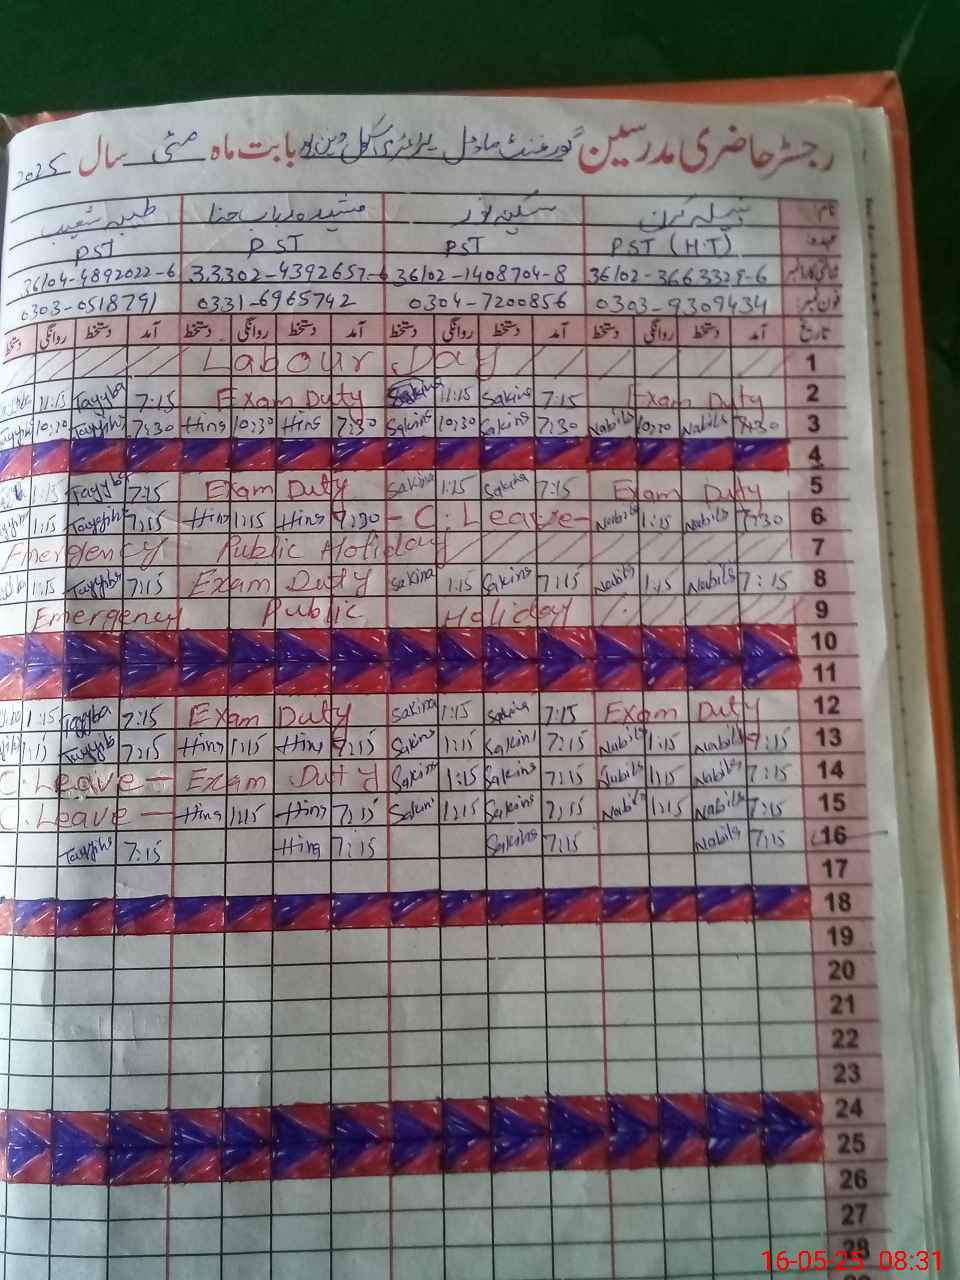 رجسٹر حاضری مدرسین گورنمنٹ ماڈل پرائمری سکول بابت ماہ مئی سال 2025
نام نبیلہ کرن سکینہ نور مشیدہ رباب حنا طیبہ شعیب
عہدہ PST (H.T) PST PST PST
شناختی کارڈ نمبر 36102-3663329-6 36102-1408704-8 33302-4392657-6 36104-4892022-6
فون نمبر 0303-9309434 0304-7200856 0331-6965742 0303-0518791
تاریخ آمد دستخط روانگی دستخط آمد دستخط روانگی دستخط آمد دستخط روانگی دستخط آمد دستخط روانگی دستخط
Labour Day 1
11:15 Tayyba 7:15 Exam Duty Sakina 11:15 Sakina 7:15 Exam Duty 2
Tayyiba 10:20 Tayyiba 7:30 Hina 10:30 Hina 7:30 Sakina 10:30 Sakina 7:30 Nabila 10:20 Nabila 7:30 3
4
1:15 Tayyba 7:15 Exam Duty Sakina 1:15 Sakina 7:15 Exam Duty 5
1:15 Tayyiba 7:15 Hina 1:15 Hina 7:30 - C. Leave - Nabila 1:15 Nabila 7:30 6
Emergency Public Holiday 7
1:15 Tayyiba 7:15 Exam Duty Sakina 1:15 Sakina 7:15 Nabila 1:15 Nabila 7:15 8
Emergency Public Holiday 9
10
11
1:15 Tayyba 7:15 Exam Duty Sakina 1:15 Sakina 7:15 Exam Duty 12
1:15 Tayyba 7:15 Hina 1:15 Hina 7:15 Sakina 1:15 Sakina 7:15 Nabila 1:15 Nabila 7:15 13
C. Leave - Exam Duty Sakina 1:15 Sakina 7:15 Nabila 1:15 Nabila 7:15 14
C. Leave - Hina 1:15 Hina 7:15 Sakina 1:15 Sakina 7:15 Nabila 1:15 Nabila 7:15 15
Tayyiba 7:15 Hina 7:15 Sakina 7:15 Nabila 7:15 16
17
18
19
20
21
22
23
24
25
26
27
28
16-05-25 08:31